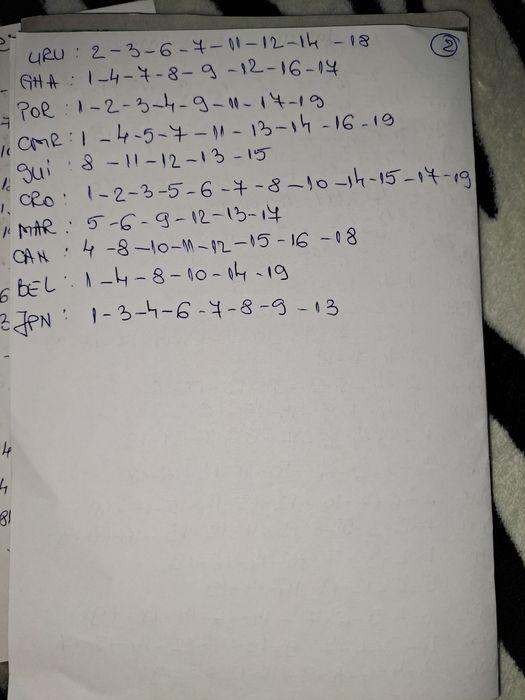 2
URU : 2-3-6-7-11-12-14-18
GHA : 1-4-7-8-9-12-16-17
POR : 1-2-3-4-9-11-17-19
CMR : 1-4-5-7-11-13-14-16-19
gui : 8-11-12-13-15
CRO : 1-2-3-5-6-7-8-10-14-15-17-19
MAR : 5-6-9-12-13-17
CAN : 4-8-10-11-12-15-16-18
BEL : 1-4-8-10-14-19
JPN : 1-3-4-6-7-8-9-13